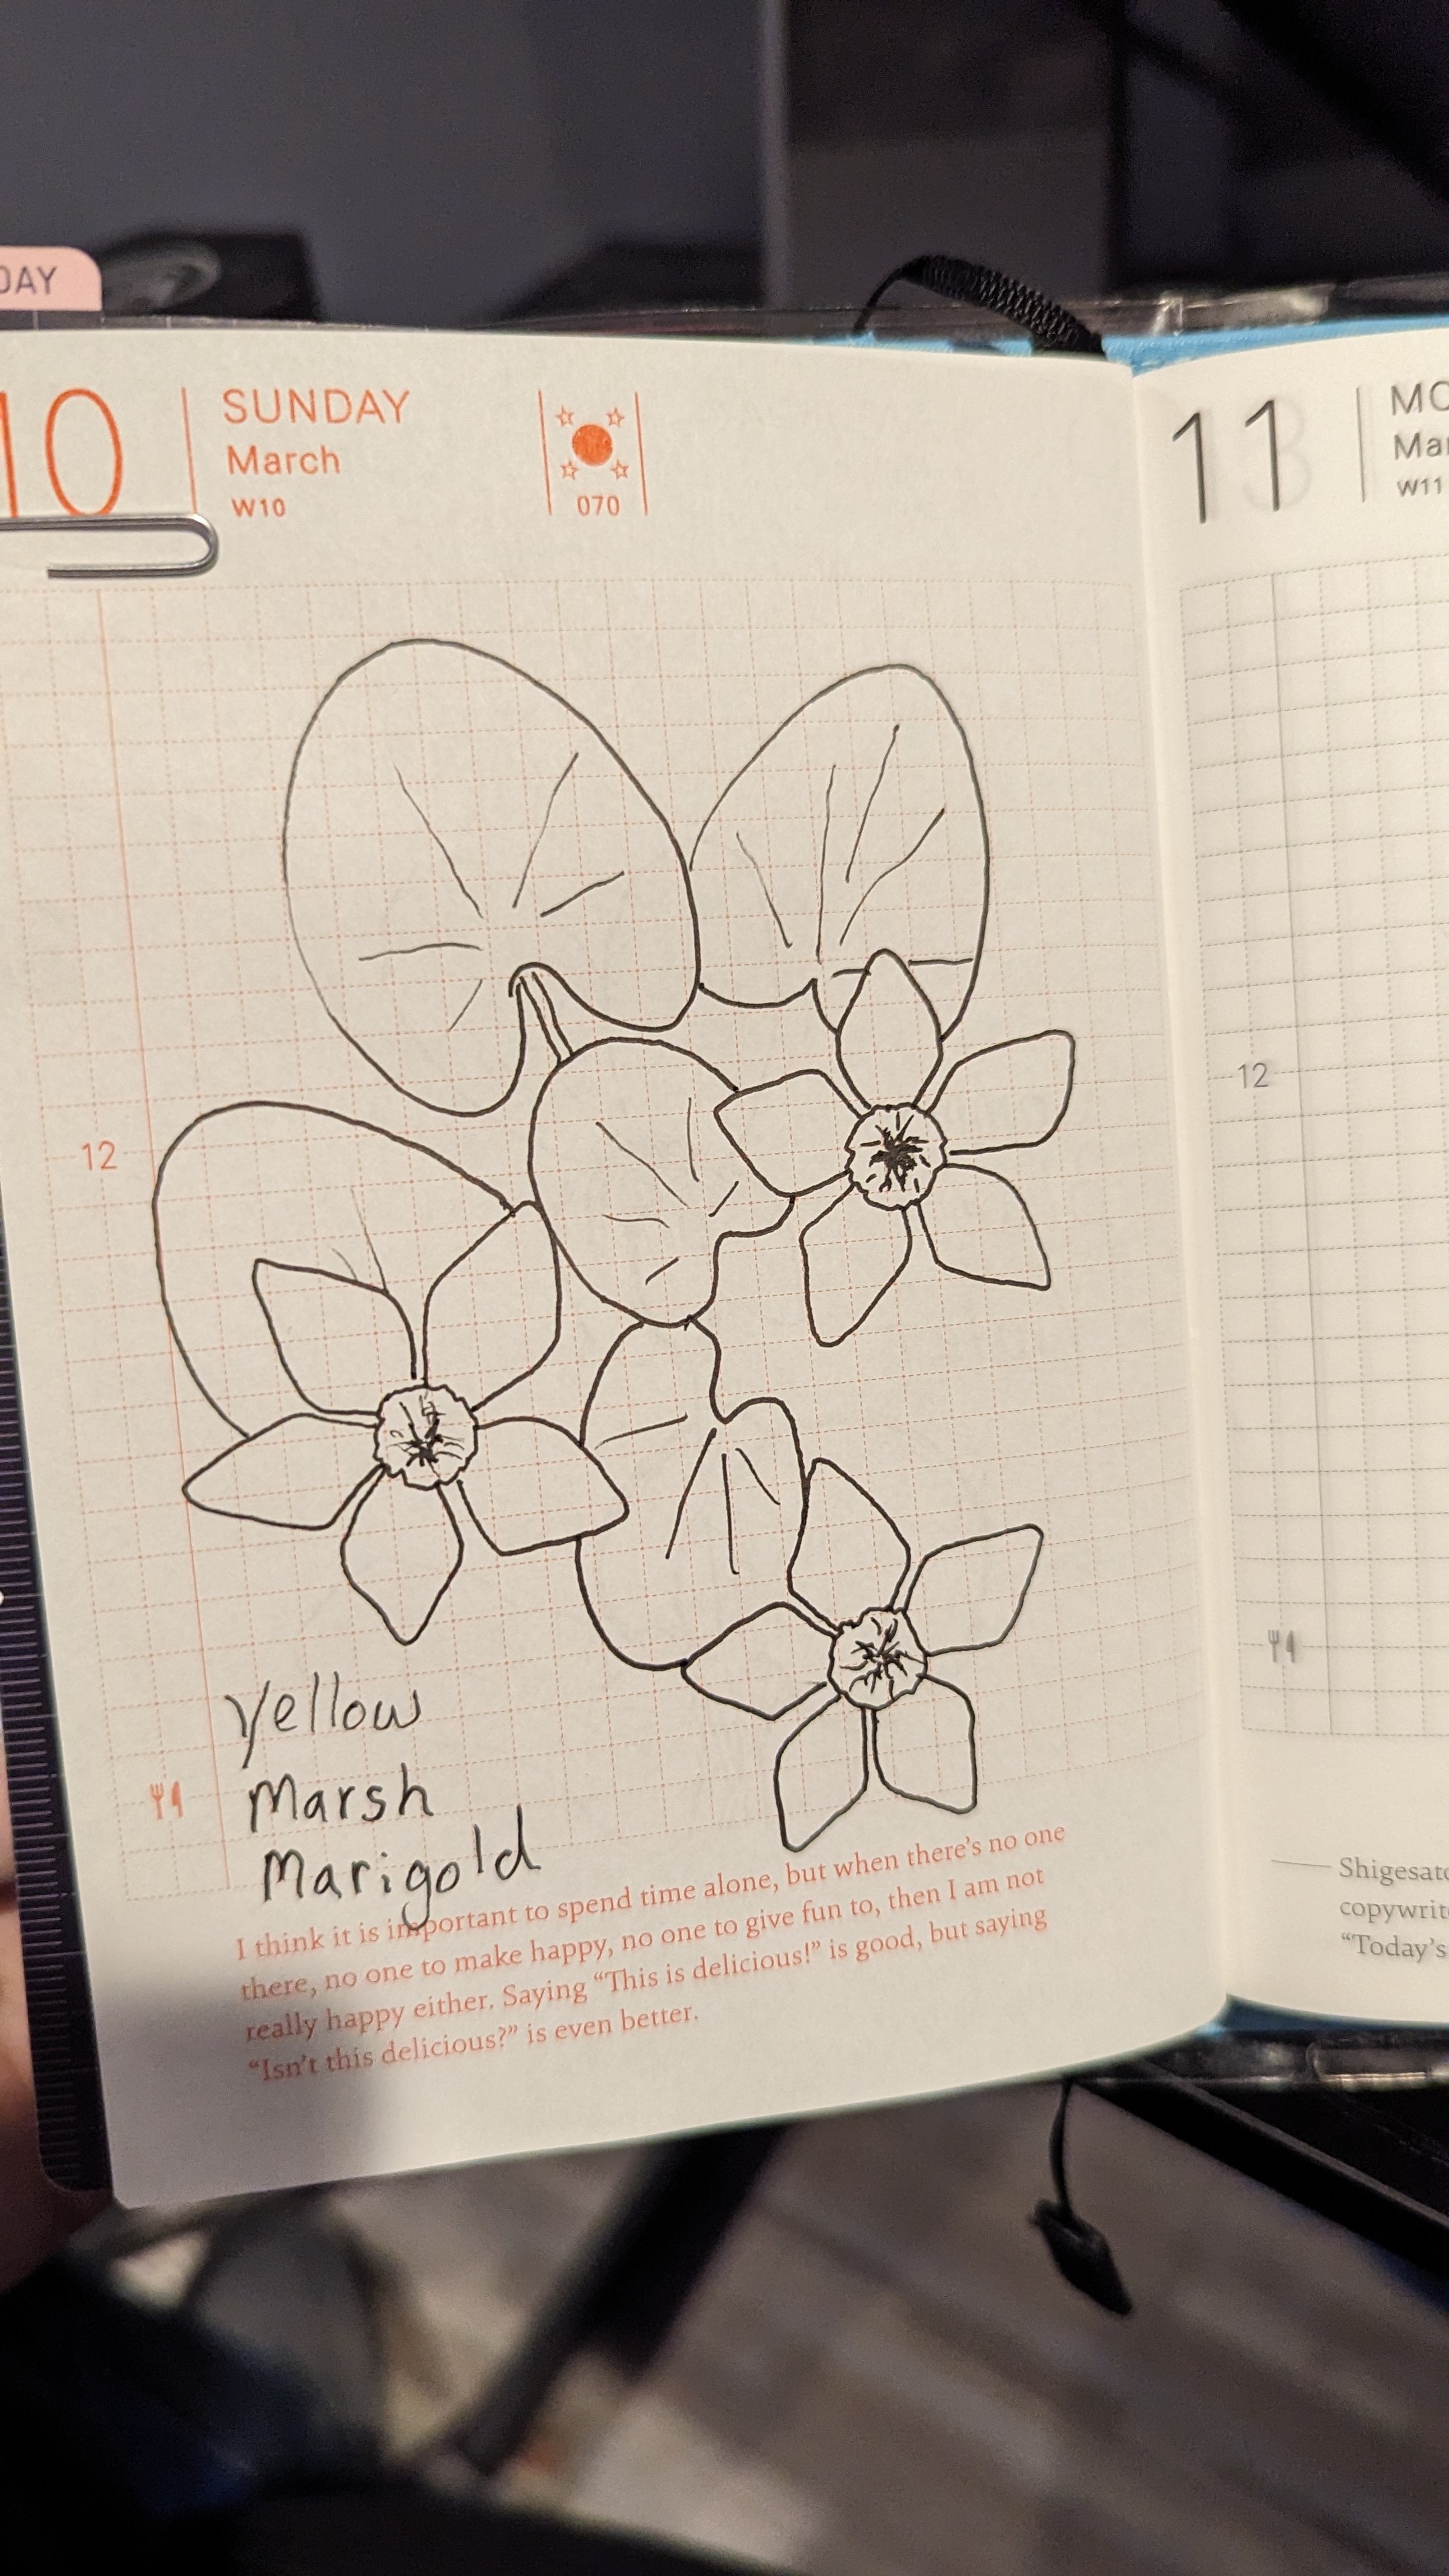 DAY
10
SUNDAY
March
W10
070
12
Yellow
Marsh
Marigold
I think it is important to spend time alone, but when there's no one
there, no one to make happy, no one to give fun to, then I am not
really happy either. Saying “This is delicious!” is good, but saying
“Isn't this delicious?” is even better.
11
MO
Mar
W11
12
Shigesato
copywrite
“Today's